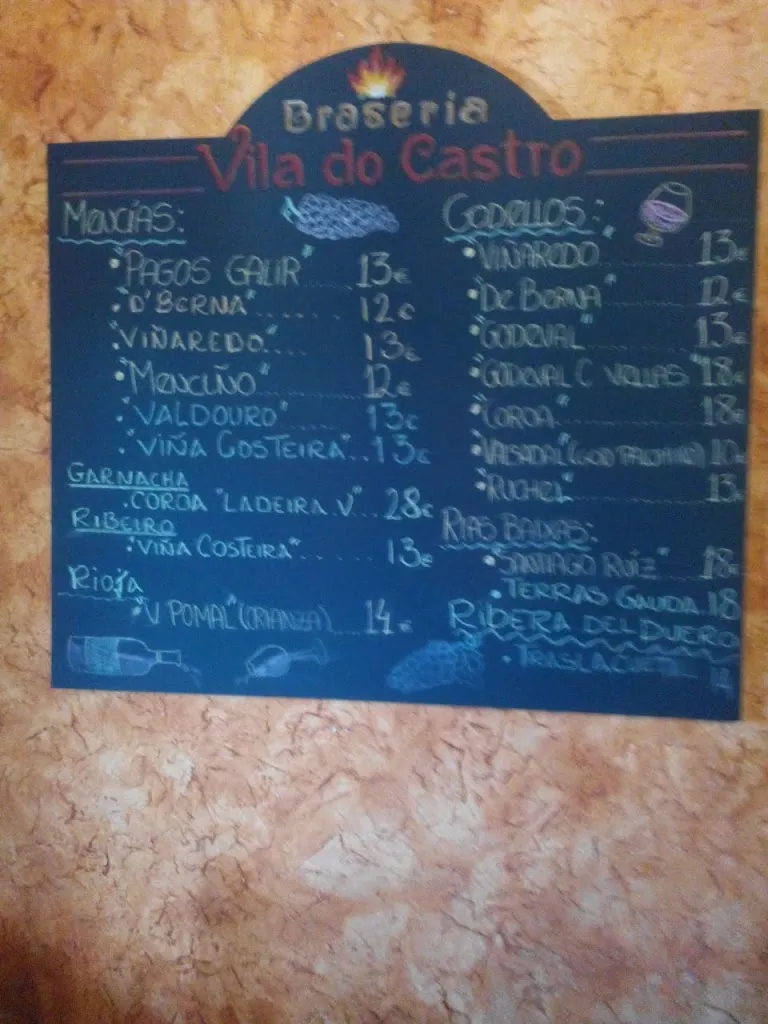 Braseria
Vila do Castro
MENCÍAS:
"PAGOS GALIR" 13€
"D'BERNA"...... 12€
"VIÑAREDO".... 13€
"MENCIÑO" 12€
"VALDOURO" 13€
"VIÑA COSTEIRA"..13€
GARNACHA
COROA "LADEIRA V"...28€
RIBEIRO
"VIÑA COSTEIRA"...... 13€
Rioja
"V POMAL"(CRIANZA)....14€
GODELLOS:
"VIÑAREDO" 13€
"De BERNA" 12€
"GODEVAL" 13€
"GODEVAL C VELLAS" 18€
"COROA" 18€
13
RIAS BAIXAS:
"SANTIAGO RUIZ" 18€
TERRAS GAUDA 18
RIBERA DEL DUERO